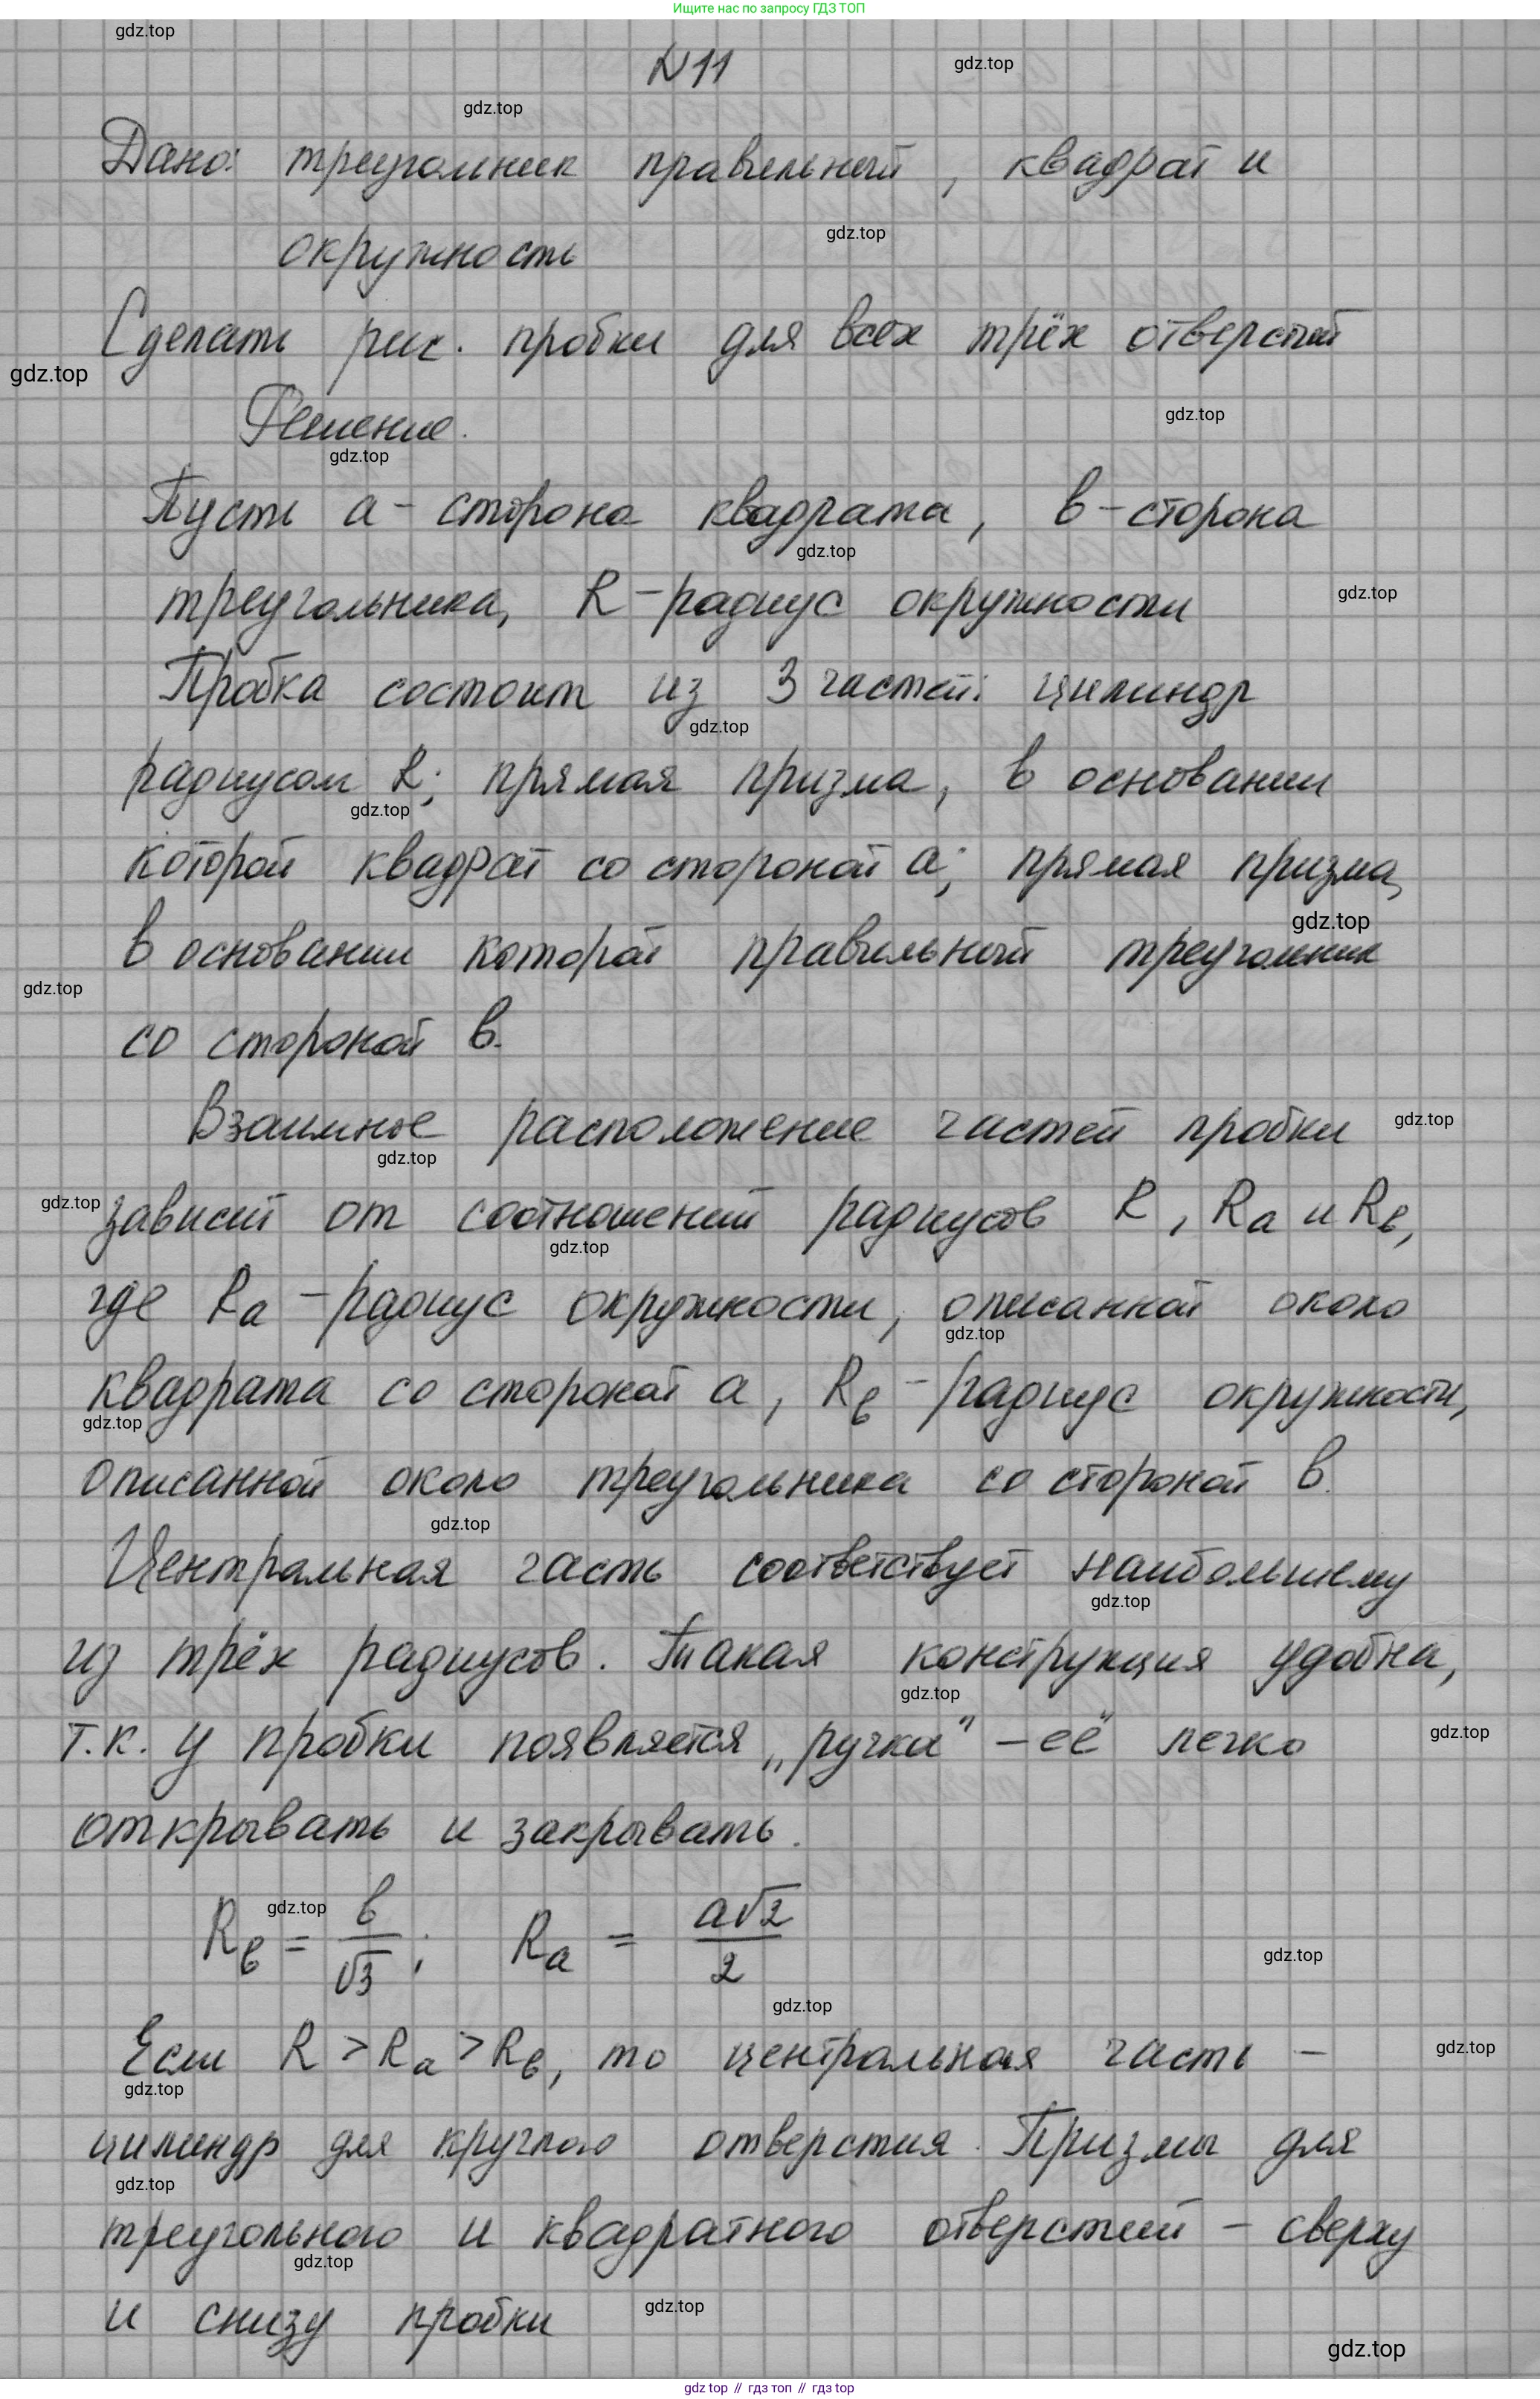 Ищите нас по запросу ГДЗ ТОП
gdz.top
N 11
gdz.top
gdz.top
Дано: треугольник правильный, квадрат и
gdz.top
окружность
Сделать рис. пробки для всех трёх отверстий
gdz.top
gdz.top
Решение.
gdz.top
Пусть a - сторона квадрата, b - сторона
gdz.top
треугольника, R - радиус окружности
gdz.top
Пробка состоит из 3 частей: цилиндр
gdz.top
радиусом R; прямая призма, в основании
gdz.top
которой квадрат со стороной a; прямая призма,
gdz.top
в основании которой правильный треугольник
gdz.top
со стороной b.
Взаимное расположение частей пробки
gdz.top
gdz.top
gdz.top
зависит от соотношений радиусов R, Ra и Rb,
gdz.top
где Ra - радиус окружности, описанной около
gdz.top
квадрата со стороной a, Rb - радиус окружности,
gdz.top
описанной около треугольника со стороной b.
gdz.top
Центральная часть соответствует наибольшему
gdz.top
из трёх радиусов. Такая конструкция удобна,
gdz.top
т.к. у пробки появляется „ручка" - её легко
gdz.top
открывать и закрывать.
gdz.top
Rb = b/√3; Ra = a√2/2
gdz.top
gdz.top
Если R > Ra > Rb, то центральная часть -
gdz.top
gdz.top
цилиндр для круглого отверстия. Призмы для
gdz.top
треугольного и квадратного отверстий - сверху
gdz.top
и снизу пробки
gdz.top
gdz.top
gdz top // гдз топ // гдз top